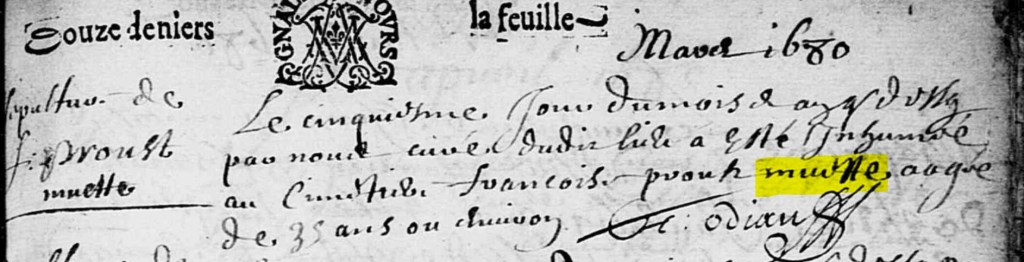 Douze deniers
GNAL TOVRS
la feuille
Mars 1680
sepulture de
f. proust
muette
Le cinquiesme Jour du mois &
par nous curé dudit lieu a esté Inhumée
au Cimetiere francoise proust muette aagée
de 35 ans ou environ